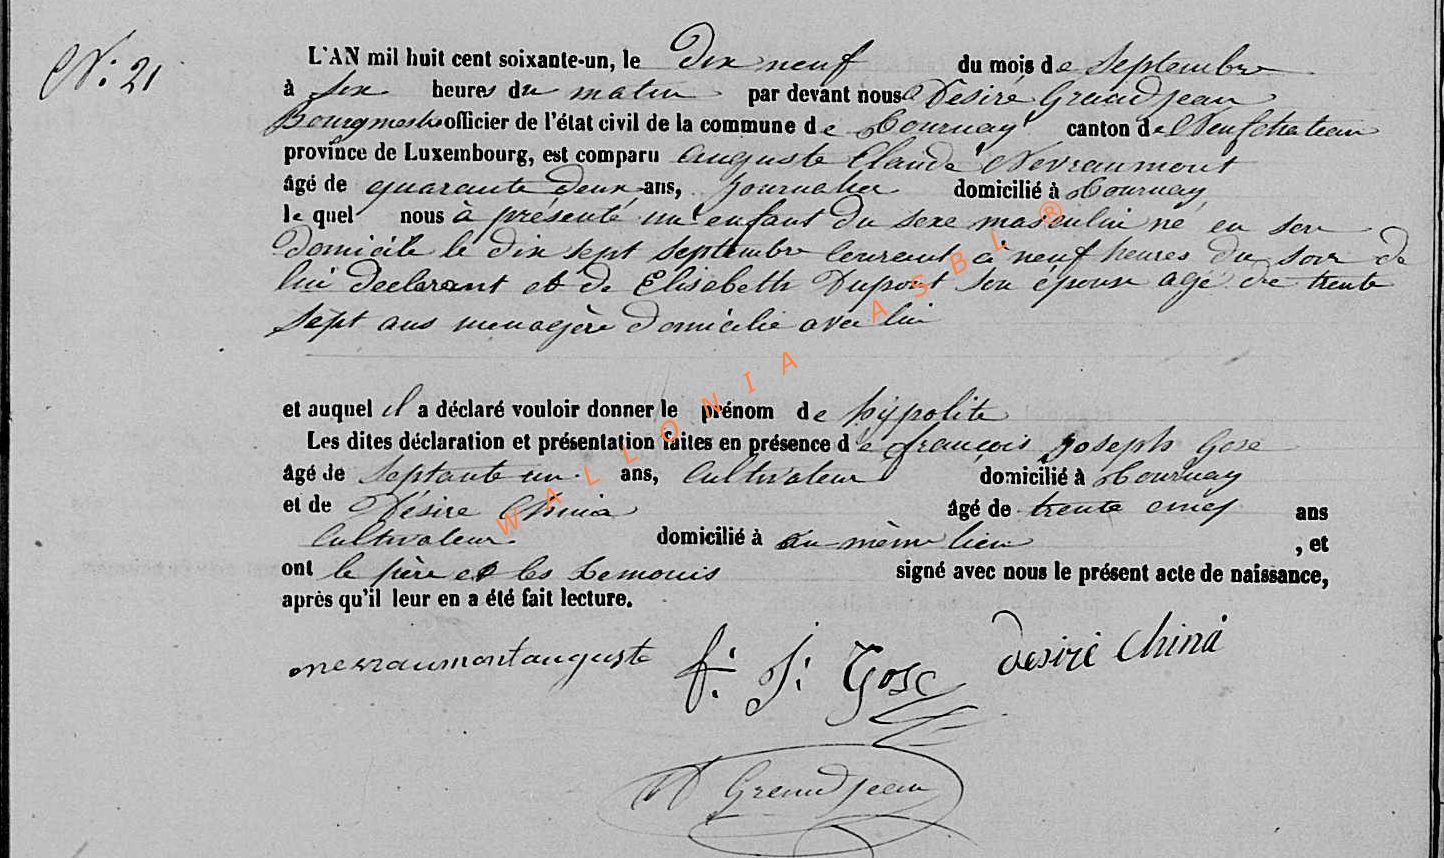 N: 21
L'AN mil huit cent soixante-un, le Dix neuf du mois de Septembre
à six heures du matin par devant nous Désiré Grandjean
Bourgmestre officier de l'état civil de la commune de Tournay canton de Neufchateau
province de Luxembourg, est comparu Auguste Claude Nevraumont
âgé de quarante deux ans, journalier domicilié à Tournay
le quel nous à présenté un enfant du sexe masculin né en son
Domicile le dix sept septembre courant à neuf heures du soir de
lui déclarant et de Elisabeth Dupont son épouse agé de trente
sept ans menagère domicilié avec lui
et auquel il a déclaré vouloir donner le prénom de hypolite
Les dites déclaration et présentation faites en présence de françois Joseph Gose
âgé de septante un ans, Cultivateur domicilié à Tournay
et de Désire Chinà âgé de trente cinq ans
Cultivateur domicilié à du même lieu , et
ont le père et les temouis signé avec nous le présent acte de naissance,
après qu'il leur en a été fait lecture.
nevraumont auguste f: J: Gose desiré China
D Grandjean
WALLONIA ASBL ®